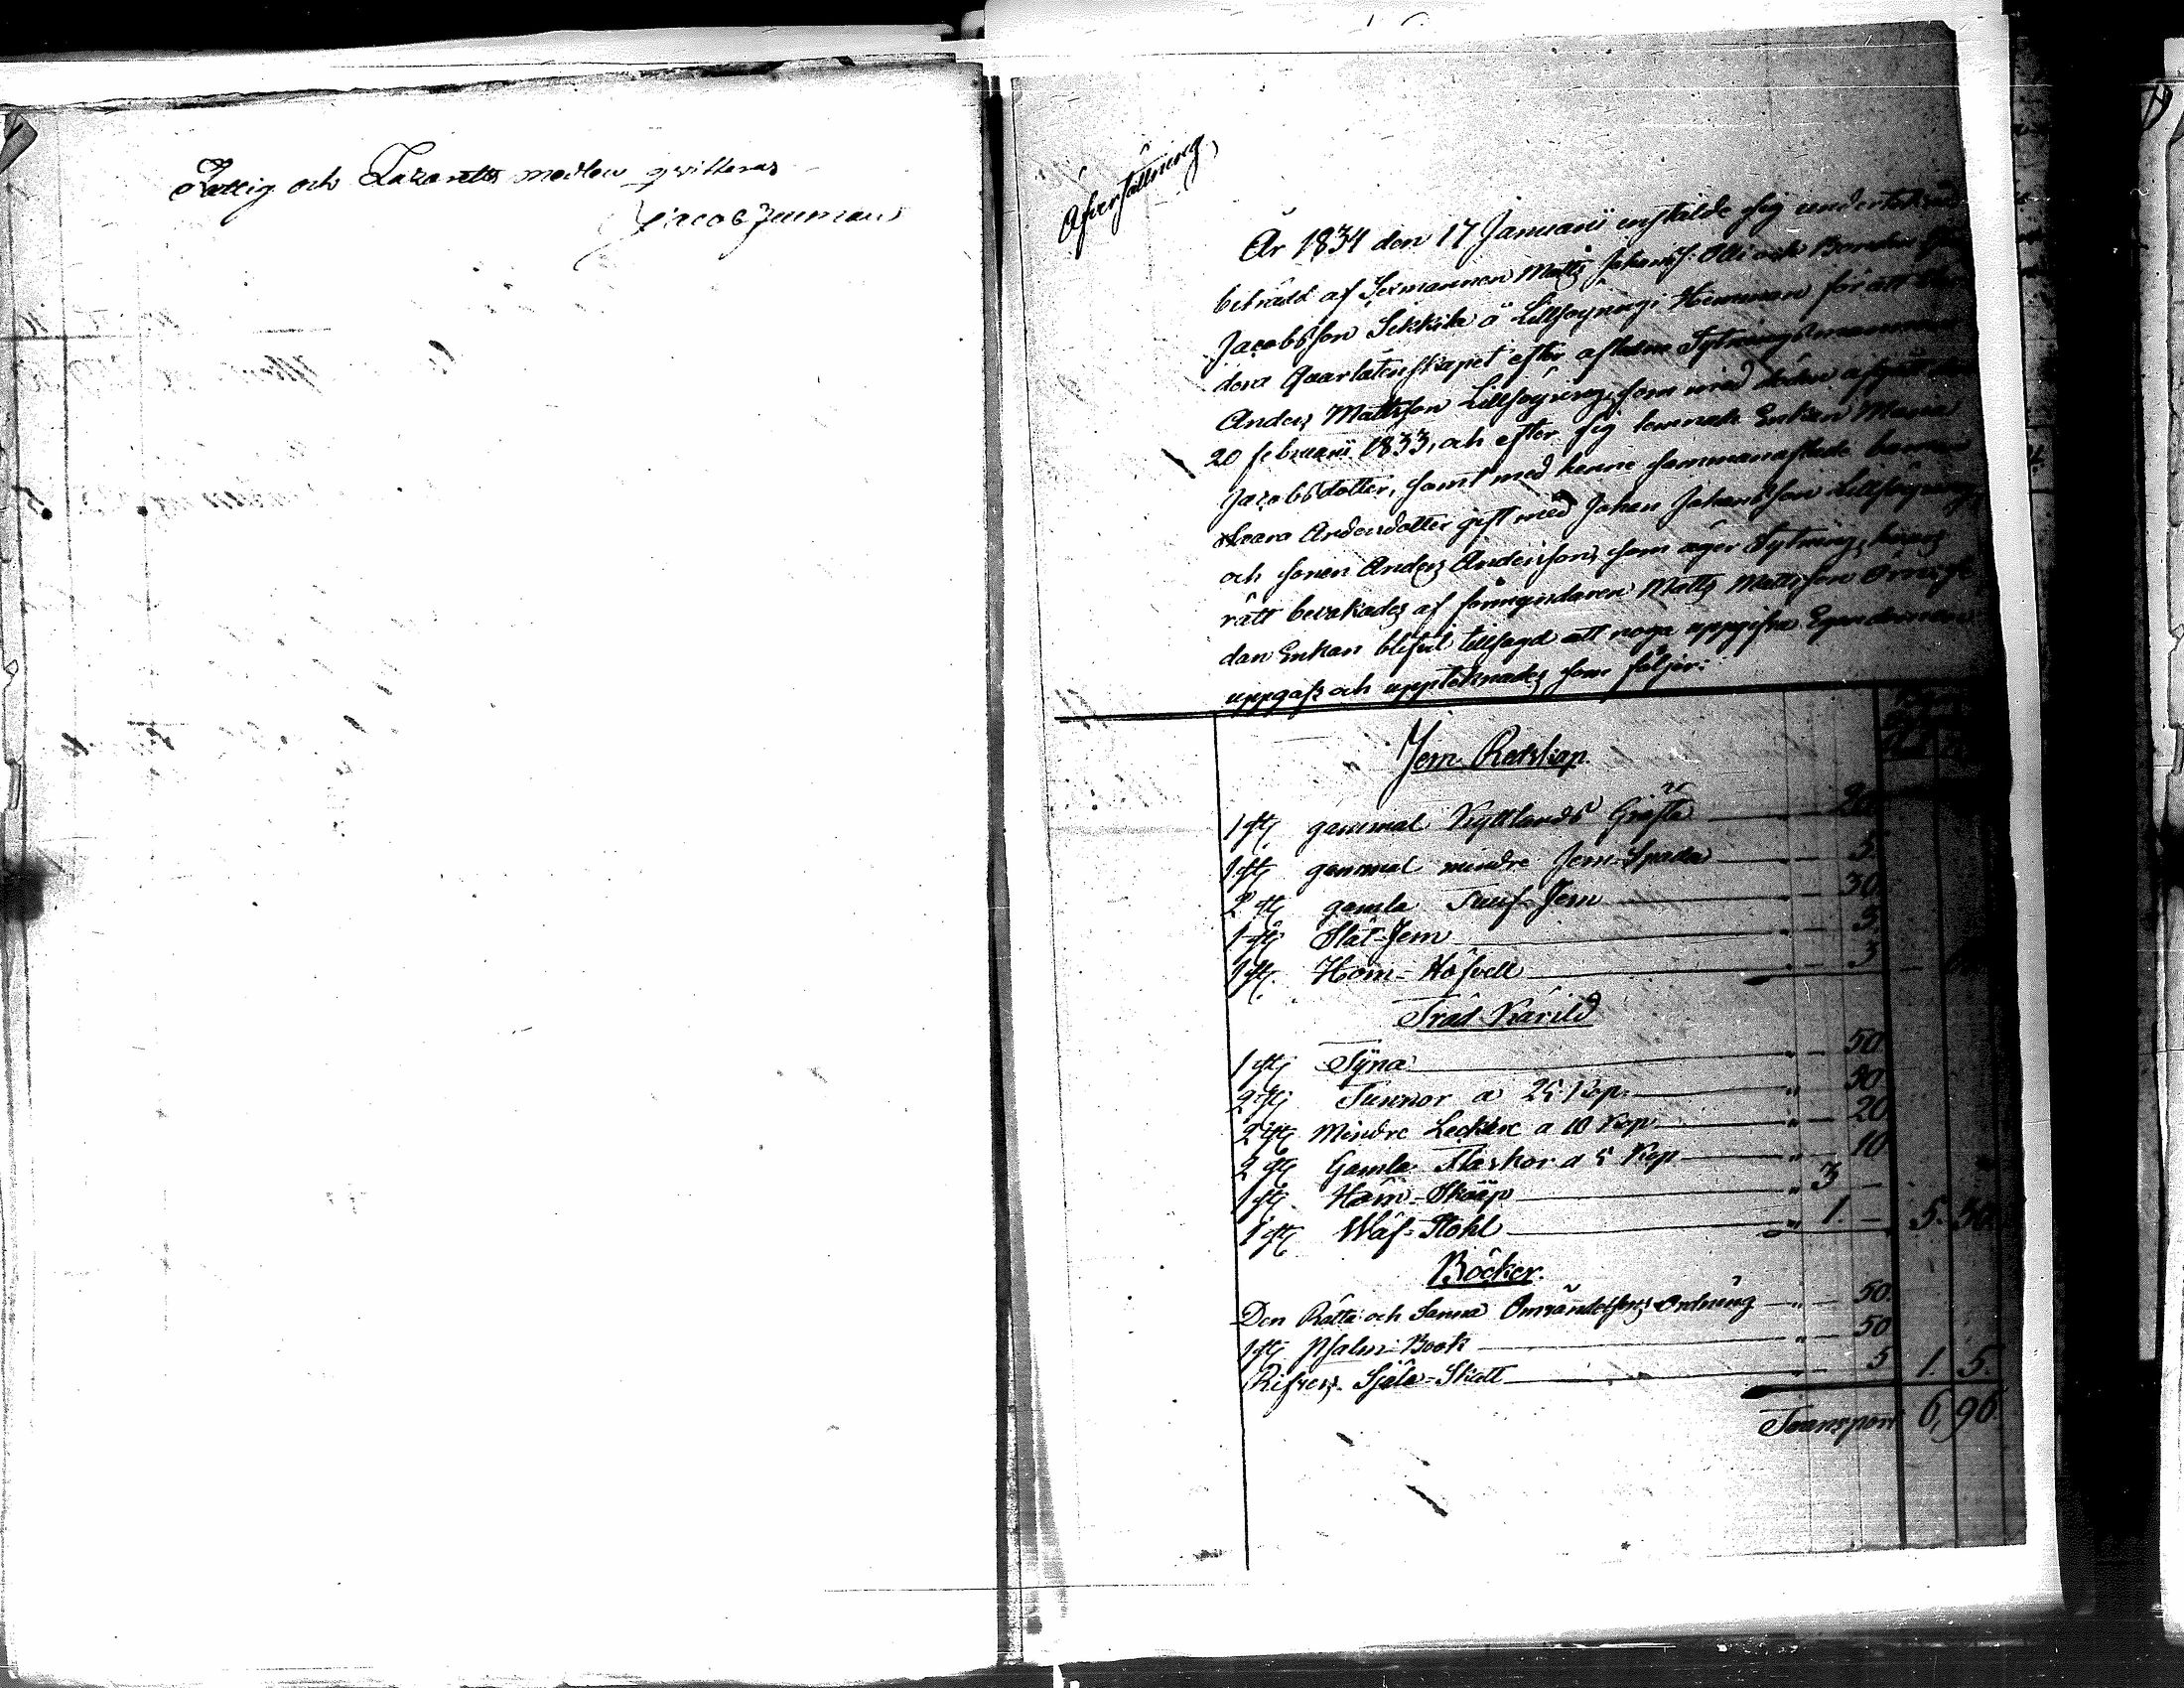 Fattig och Lazaretts medlen qvitteras
Jacob Juimau
Öfversättning,
År 1834 den 17 Januarii instälde sig undertecknad
biträdd af Sexmannen Matts Johans: Olli och Bonden
Jacobsson Sikkila å Lillsöyring Hemman för att
dera Qvarlåtenskapet efter aflidne Sytningsmannen
Anders Mattsson Lillsöyring, som med döden afgått den
20 februarii 1833, och efter sig lemnade Enkan Maria
Jacobsdotter, samt med henne sammanaflade barnen
Caara Andersdotter gift med Johan Johansson Lillsöyring
och sonen Anders Andersson, som äger Sytnings hvars
rätt bevakades af förmyndaren Matts Mattsson
dan Enkan blifvit tillsagd att noga uppgifva Egendomen
uppgafs och upptecknades som följer:
Jern Redskap.
1 st; gammal Kyttlands Gräfta " — 20
1 st; gammal mindre Jern-Spada " — 5.
2 st; gamla Tuuf-Jern " — 30.
1 st; Slåt-Jern " — 5.
1 st; Hom-Höfvell " — 3
Träd Kärild
1 st; Tÿna " — 50
2 st; Tunnor a 25 Kop. " 50
2 st; Mindre Leckare a 10 Kop " — 20
2 st; Gamla Flaskor a 5 Kop " — 10
1 st; Hom-Skååp " 3 —
1 st; Wäf-Stohl " 1. — 5. 30.
Böcker.
Den Rätta och Sanna Omvändelsens Ordning " — 50.
1 st; Psalm-Book " — 50
Rifvens Själa-Skatt " — 5 1. 5.
Transport 6, 96.